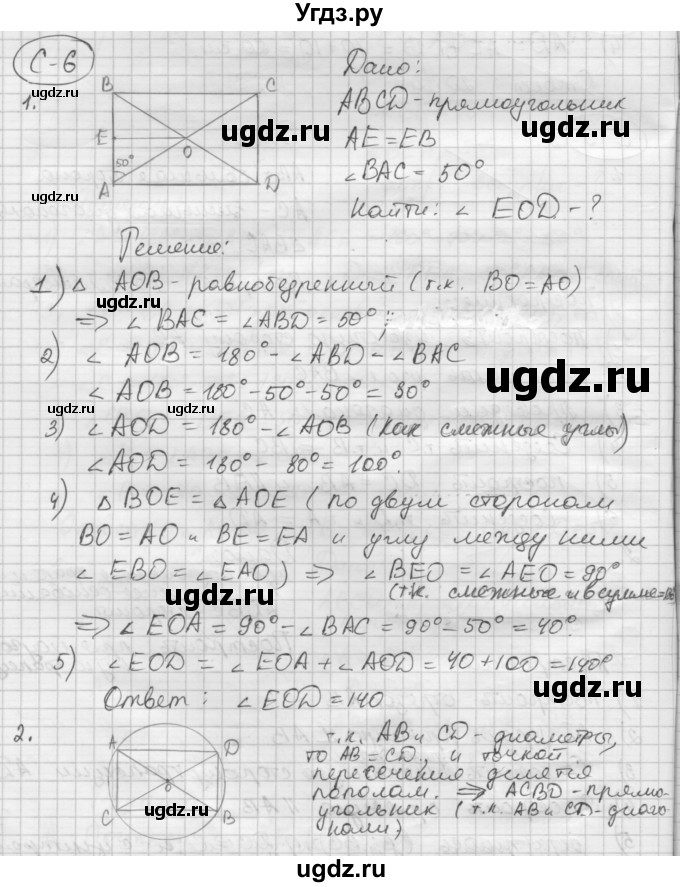 Угдз.ру
С-6
Дано:
1.
B
C
ABCD - прямоугольник
E
O
AE = EB
50°
A
D
∠BAC = 50°
Найти: ∠ EOD - ?
Решение:
1) △ AOB - равнобедренный (т.к. BO = AO)
⇒ ∠ BAC = ∠ABD = 50°;
2) ∠ AOB = 180° - ∠ABD - ∠BAC
∠ AOB = 180° - 50° - 50° = 80°
3) ∠AOD = 180° - ∠AOB (как смежные углы)
∠AOD = 180° - 80° = 100°.
4) △ BOE = △ AOE (по двум сторонам
BO = AO и BE = EA и углу между ними
∠ EBO = ∠EAO) ⇒ ∠BEO = ∠AEO = 90°
(т.к. смежные и в сумме =
⇒ ∠ EOA = 90° - ∠BAC = 90° - 50° = 40°.
5) ∠EOD = ∠ EOA + ∠AOD = 40 + 100 = 140°
Ответ: ∠EOD = 140
2.
A
D
O
C
B
т.к. AB и CD - диаметры,
то AB = CD, и точкой
пересечения делятся
пополам. ⇒ ACBD - прямо-
угольник (т.к. AB и CD - диаго
нали)
ugdz.ru
ugdz.ru
ugdz.ru
ugdz.ru
ugdz.ru
ugdz.ru
ugdz.ru
ugdz.ru
ugdz.ru
ugdz.ru
ugdz.ru
ugdz.ru
ugdz.ru
ugdz.ru